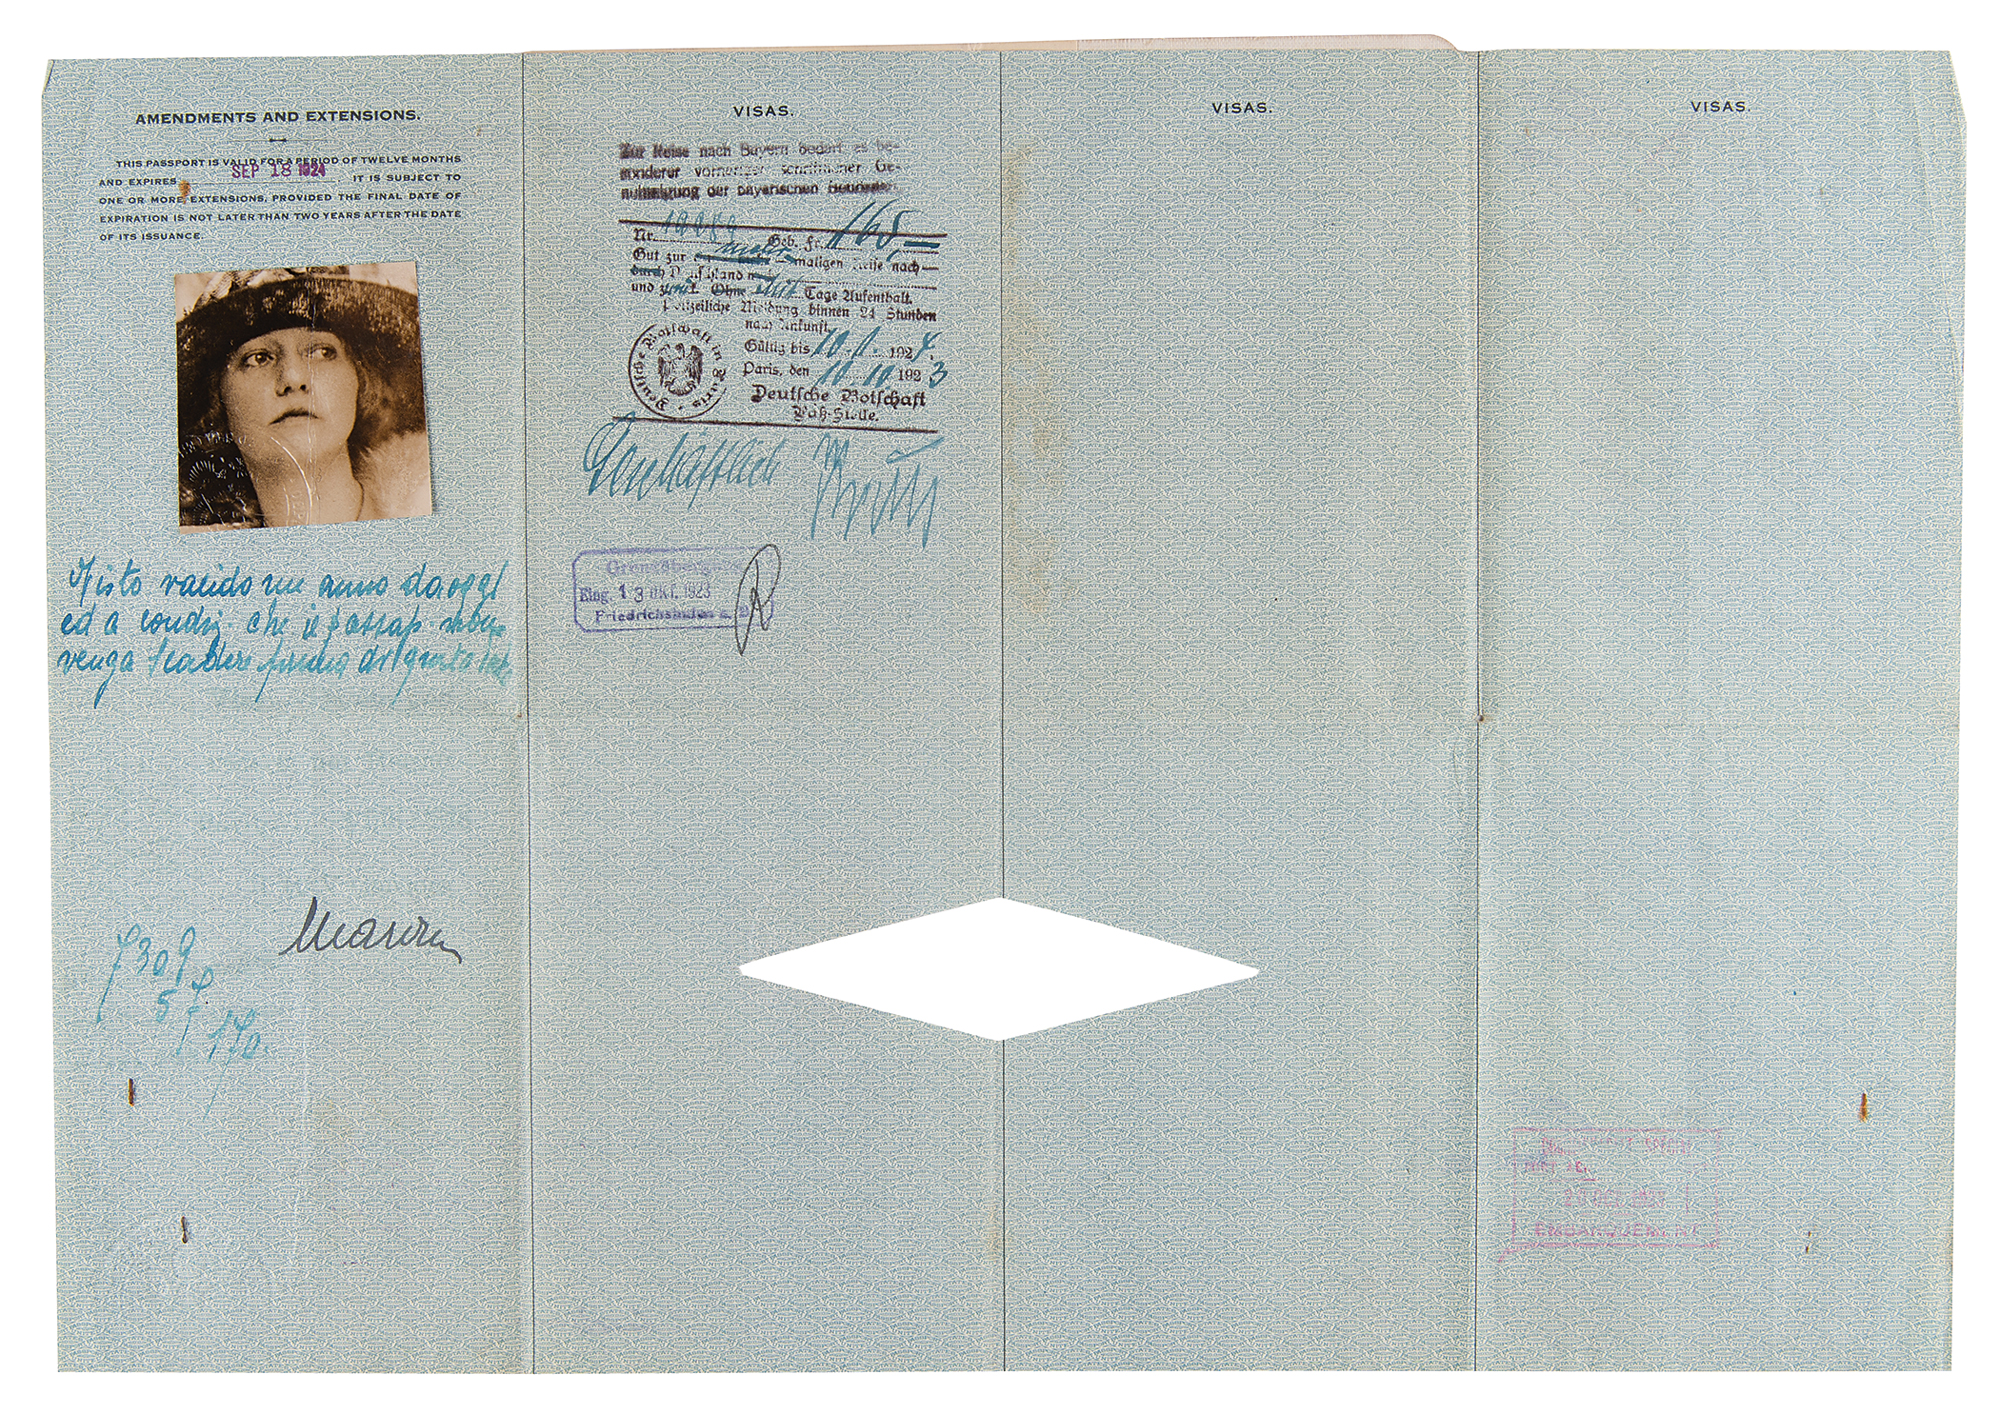 AMENDMENTS AND EXTENSIONS.
THIS PASSPORT IS VALID FOR A PERIOD OF TWELVE MONTHS
AND EXPIRES SEP 18 1924 IT IS SUBJECT TO
ONE OR MORE EXTENSIONS, PROVIDED THE FINAL DATE OF
EXPIRATION IS NOT LATER THAN TWO YEARS AFTER THE DATE
OF ITS ISSUANCE.
Visto valido un anno da oggi
ed a condiz. che il passap.
venga scadere prima di questa
7309
57
170.
VISAS.
Zur Reise nach Bayern bedarf es be-
sonderer vorheriger schriftlicher Ge-
nehmigung der bayerischen Behörden.
Nr. Geb. Fr. 165,—
Gut zur maligen Reise nach
durch Deutschland
und zurück. Ohne Tage Aufenthalt.
Polizeiliche Meldung binnen 24 Stunden
nach Ankunft.
Gültig bis 10. 1. 1924.
Paris, den 10. 10 1923
Deutsche Botschaft
Paß-Stelle.
Deutsche Botschaft in Paris
Geschäftlich
Eing. 13 OKT. 1923
Friedrichshafen a. B.
VISAS.
VISAS.